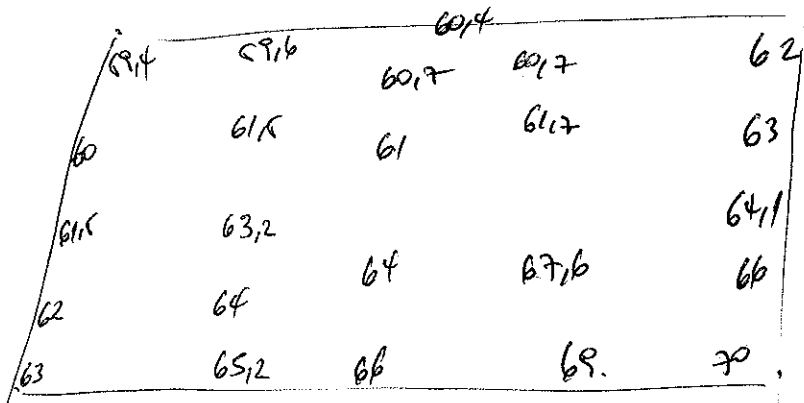 60,4
59,4 59,6 60,7 60,7 62
60 61,5 61 61,7 63
61,5 63,2 64,1
64 67,6 66
62 64
63 65,2 66 69. 70